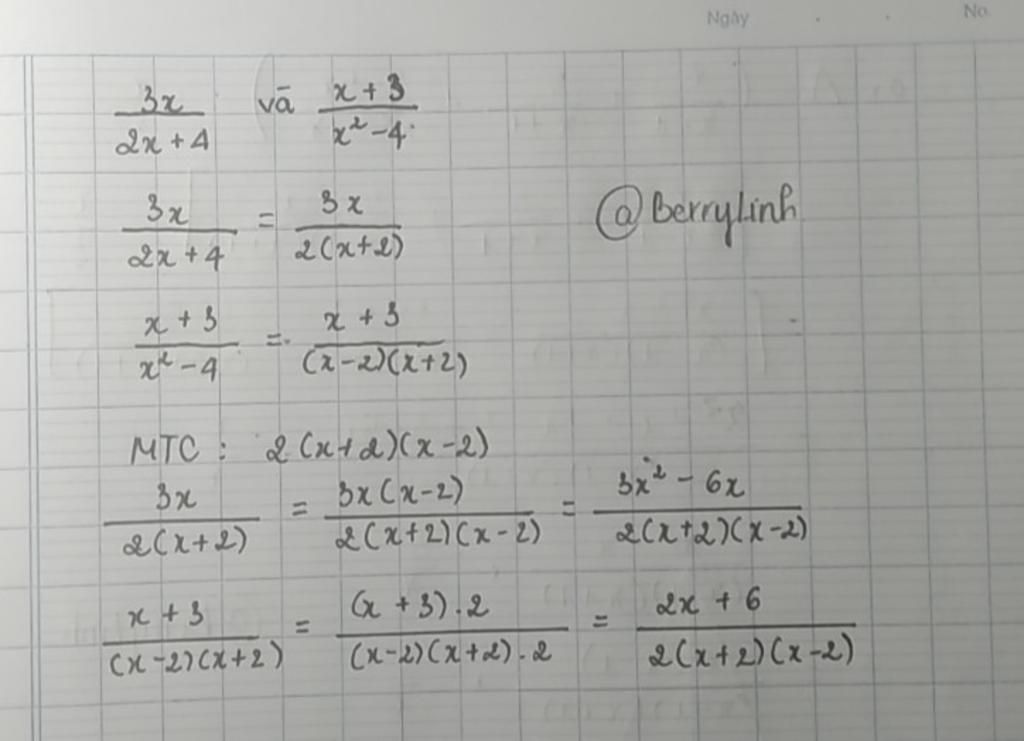 Ngày No
3x/(2x + 4) và (x + 3)/(x² - 4)
3x/(2x + 4) = 3x/(2(x+2))
@BerryLinh
(x + 3)/(x² - 4) = (x + 3)/((x-2)(x+2))
MTC : 2(x+2)(x-2)
3x/(2(x+2)) = 3x(x-2)/(2(x+2)(x-2)) = (3x² - 6x)/(2(x+2)(x-2))
(x + 3)/((x-2)(x+2)) = ((x + 3).2)/((x-2)(x+2).2) = (2x + 6)/(2(x+2)(x-2))